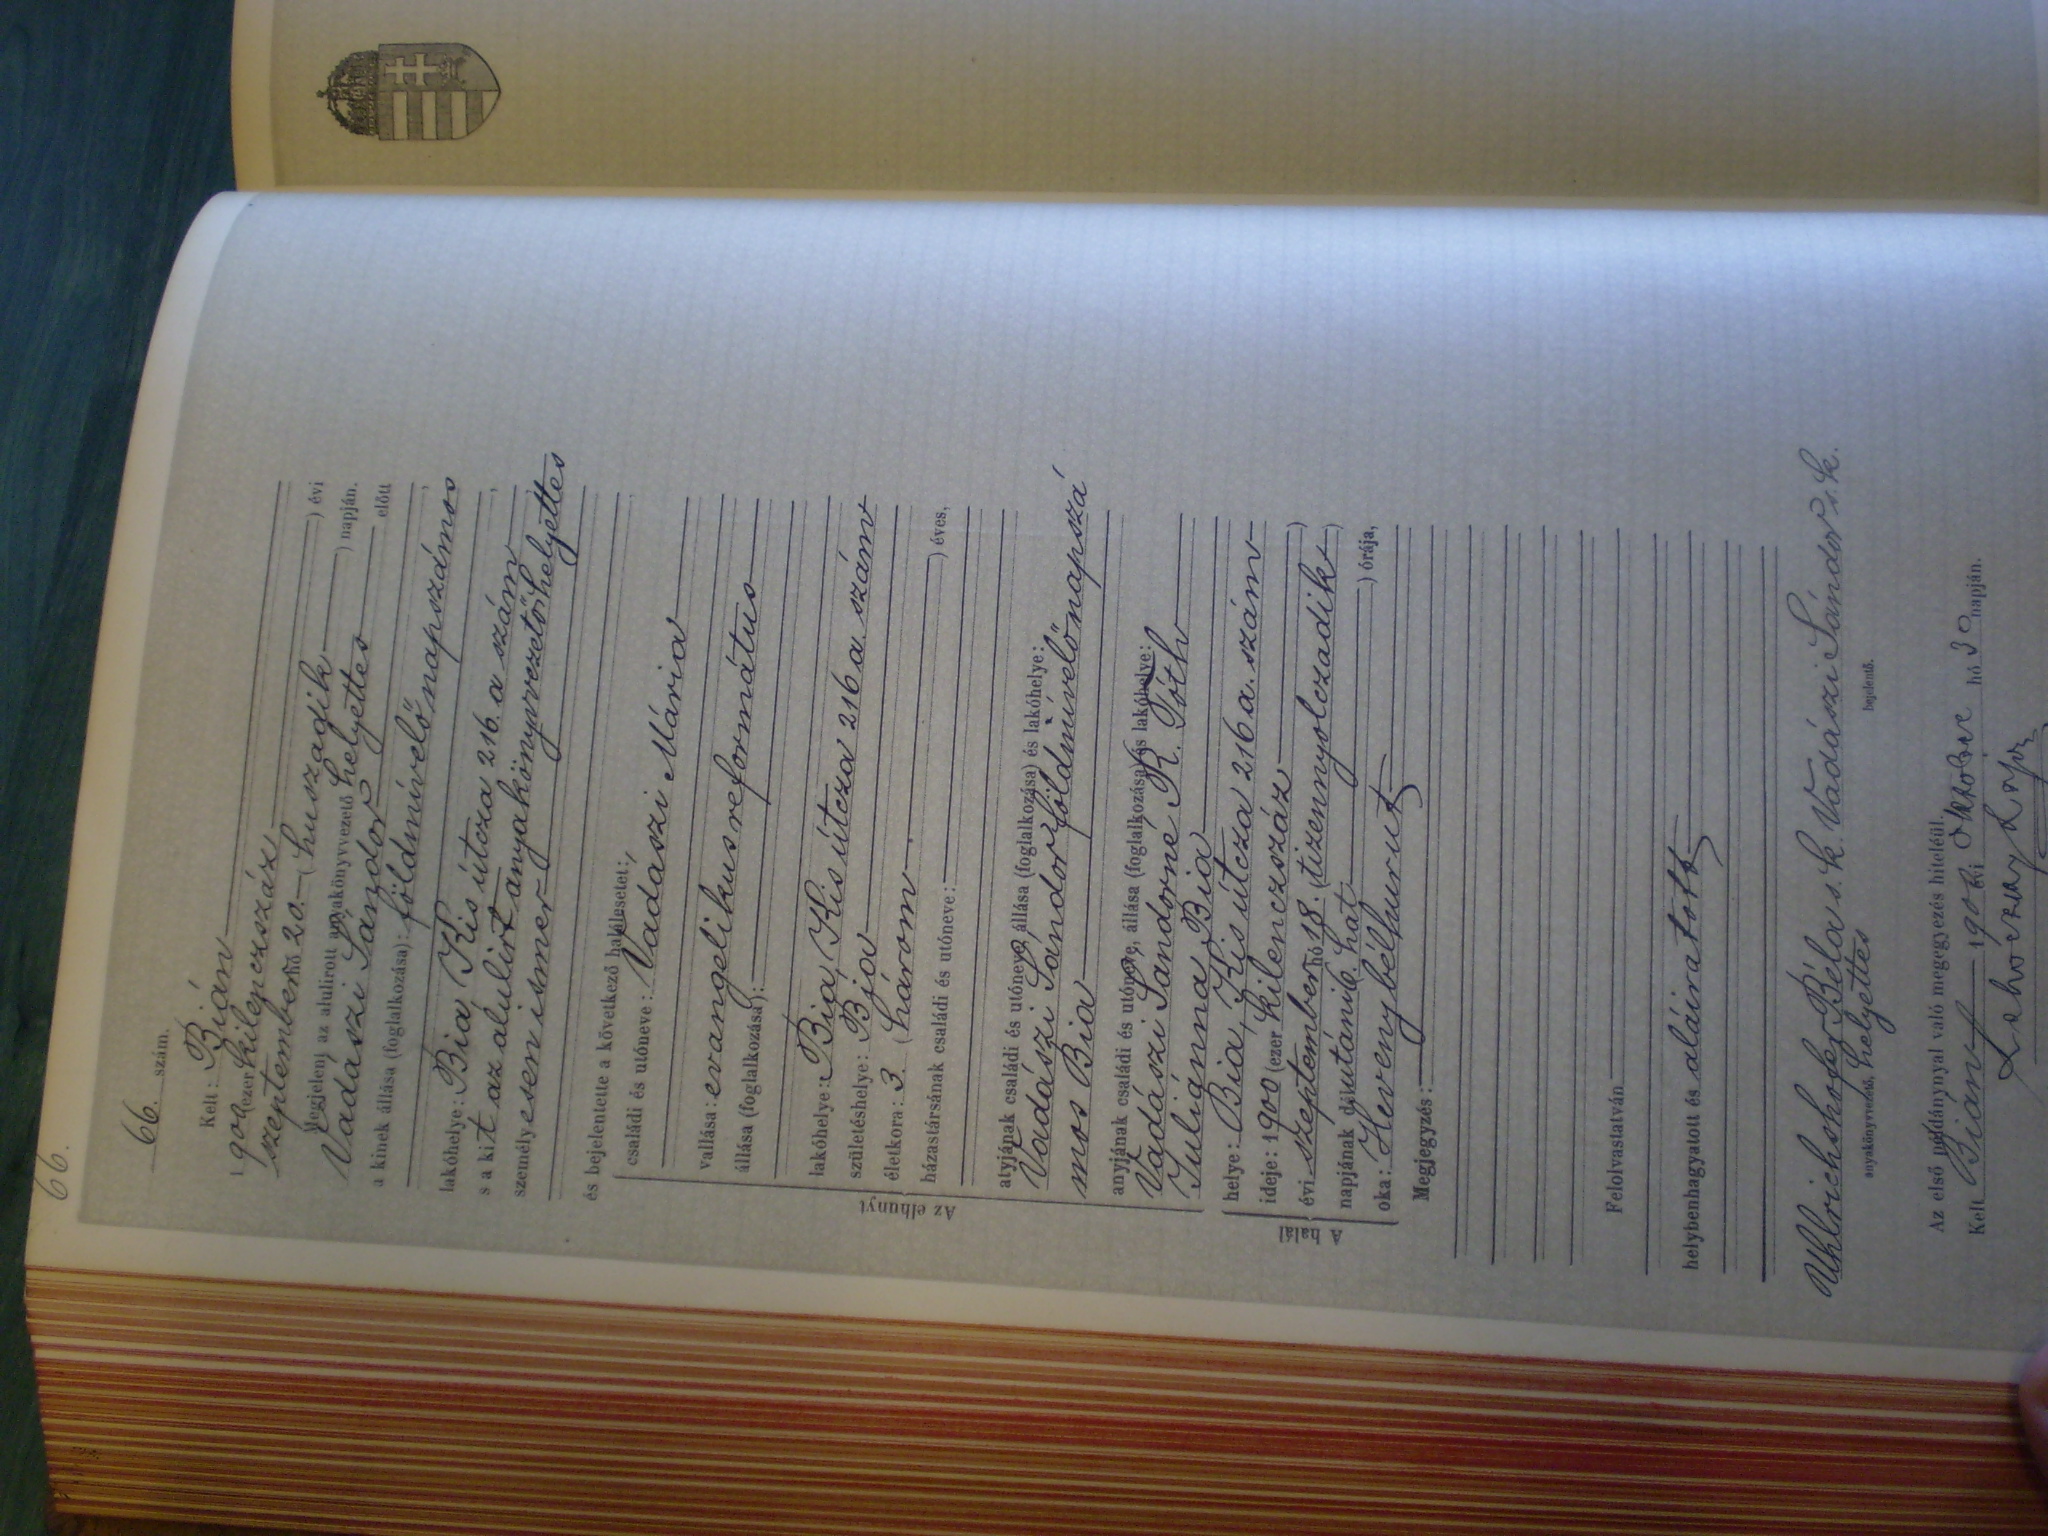 66.
66. szám.
Kelt: Bián
1900 ezer kilenczszáz ) évi
szeptember hó 20. (huszadik ) napján.
Megjelent az alulirott anyakönyvvezető helyettes előtt
Vadászi Sándor
a kinek állása (foglalkozása): földmívelő napszámos,
lakóhelye: Bia, Kis útcza 216. a szám,
s a kit az alulirt anyakönyvvezető helyettes
személyesen ismer,
és bejelentette a következő halálesetet:
családi és utóneve: Vadászi Mária,
vallása: evangelikus református
állása (foglalkozása):
lakóhelye: Bia, Kis útcza 216 a. szám
születéshelye: Bia
életkora: 3. (három ) éves,
házastársának családi és utóneve:
Az elhunyt
atyjának családi és utóneve, állása (foglalkozása) és lakóhelye:
Vadászi Sándor földmívelő napszá
mos Bia
anyjának családi és utóneve, állása (foglalkozása) és lakóhelye:
Vadászi Sándorné R. Tóth
Juliánna Bia
A halál
helye: Bia, Kis útcza 216 a. szám
ideje: 1900 (ezer kilenczszáz )
évi szeptember hó 18. (tizennyolczadik )
napjának délutáni 6. (hat ) órája,
oka: Hevenybélhurut
Megjegyzés:
Felolvastatván
helybenhagyatott és aláiratott
Uhlrichshofer Béla s. k. Vadászi Sándor s. k.
anyakönyvvezető, helyettes bejelentő.
Az első példánynyal való megegyezés hiteléül.
Kelt Bián 1900 évi Október hó 30 napján.